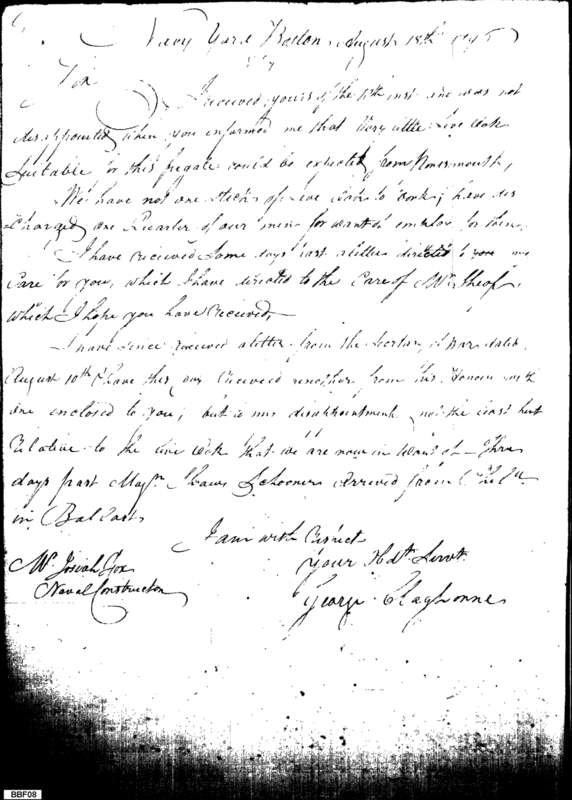 Navy Yard Boston August 18th 1795
Sir
I received yours of the inst and was not
disappointed when you informed me that very little Live Oak
Suitable for this frigate could be expected from Portsmouth,
We have not one Stick of Live Oak to work; have dis
Charged one Quarter of our men for want of employ for them.
I have received some days past a letter directed to you
Care for you, which I have directed to the Care of Mr
which I hope you have received,
I have since received a letter from the Secretary of War dated
August 10th & have this day received another from his Honour with
one enclosed to you; but to my disappointment not the least hint
relative to the live Oak that we are now in Want of - Three
days past Schooner arrived from
in Ballast
I am with Respect
Your Hdt. Servt.
George Claghorne
Mr. Josiah Fox
Naval Constructor
BBF08